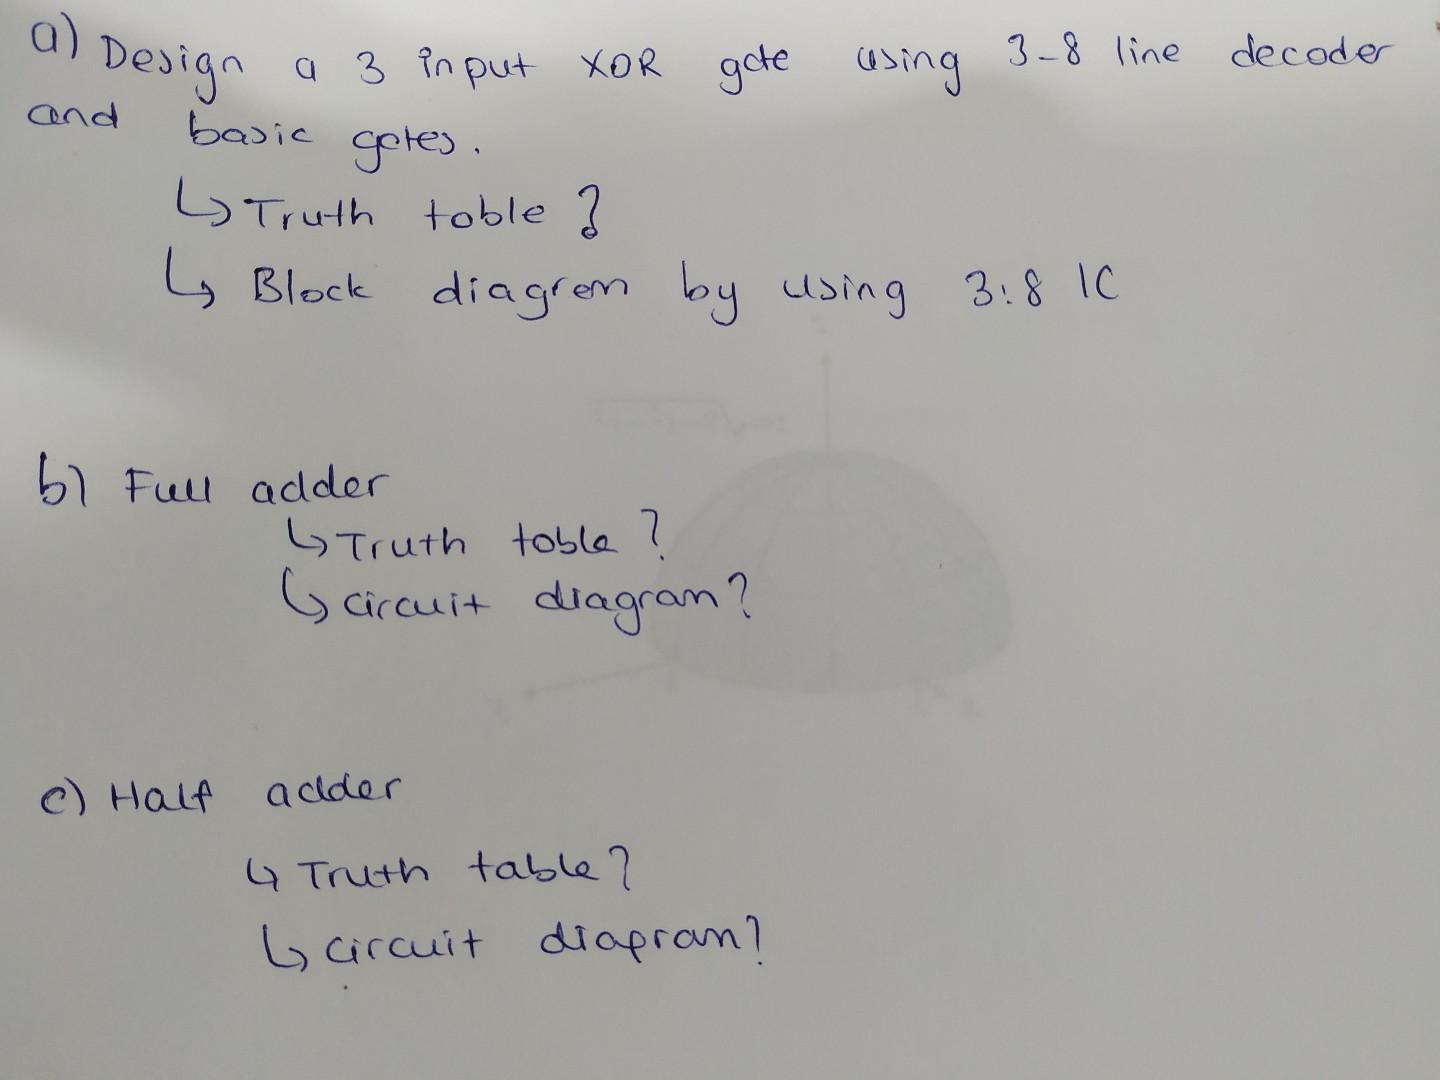 a) Design a 3 input XOR gate using 3-8 line decoder
and basic gates.
↳ Truth table ?
↳ Block diagram by using 3:8 IC
b) Full adder
↳ Truth table ?
↳ circuit diagram ?
c) Half adder
↳ Truth table ?
↳ circuit diagram ?